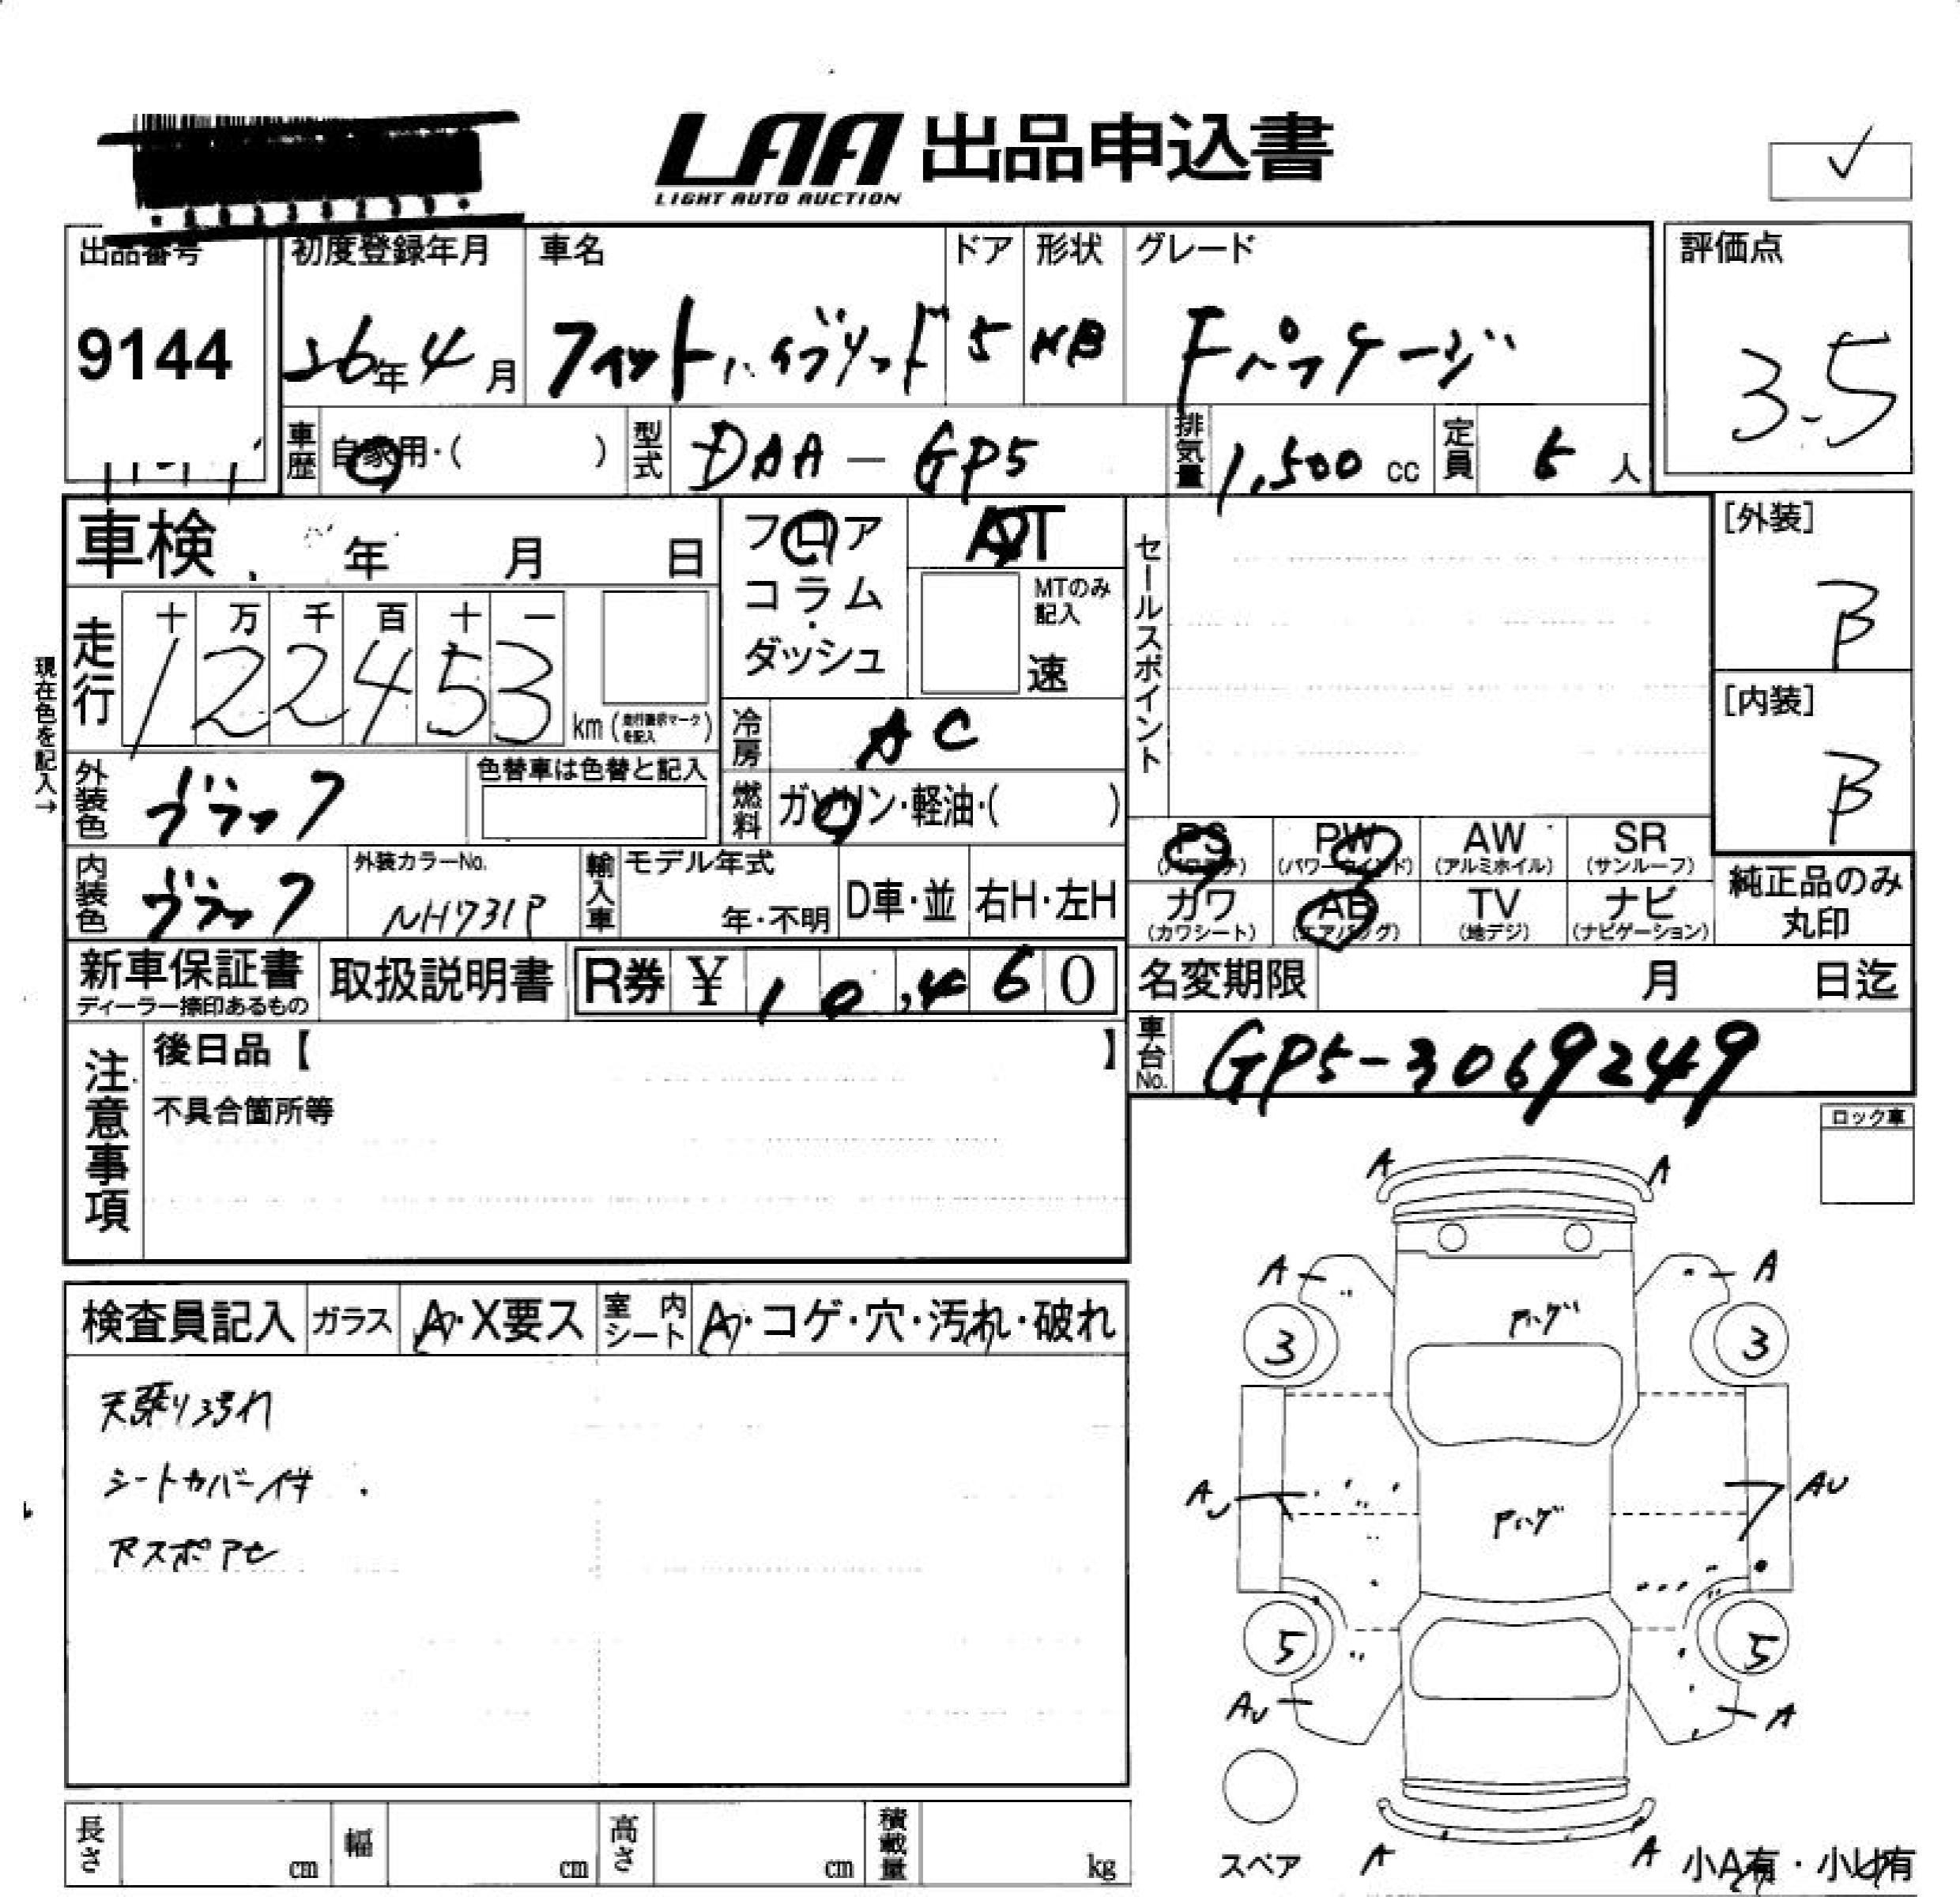 LAA 出品申込書
LIGHT AUTO AUCTION
出品番号 初度登録年月 車名 ドア 形状 グレード 評価点
9144 26年4月 フィットハイブリッド 5 HB Fパッケージ 3.5
車歴 自家用・( ) 型式 DAA-GP5 排気量 1,500 cc 定員 5 人
車検 年 月 日 フロア AT セールスポイント [外装]
コラム・ MTのみ記入 B
ダッシュ 速
走行 十 万 千 百 十 一
122453 km (走行謎求マーク
を記入) [内装]
現在色を記入→
冷房 AC B
外装色 ブラック 色替車は色替と記入 燃料 ガソリン・軽油・( )
PS PW AW SR
(パワステ) (パワーウインド) (アルミホイル) (サンルーフ) 純正品のみ
内装色 ブラック 外装カラーNo. NH731P 輸入車 モデル年式 年・不明 D車・並 右H・左H
カワ AB TV ナビ 丸印
(カワシート) (エアバッグ) (地デジ) (ナビゲーション)
新車保証書 取扱説明書 R券 ¥ 10,460 名変期限 月 日迄
ディーラー捺印あるもの
注意事項 後日品【 】 車台No. GP5-3069249
不具合箇所等 ロック車
A A
A A
検査員記入 ガラス A・X要ス 室内シート A・コゲ・穴・汚れ・破れ
アハゲ
3 3
天張り汚れ
シートカバー付
AU アハゲ AU
Rスポアセ
5 5
AU A
長さ cm 幅 cm 高さ cm 積載量 kg
スペア A A 小A有・小U有